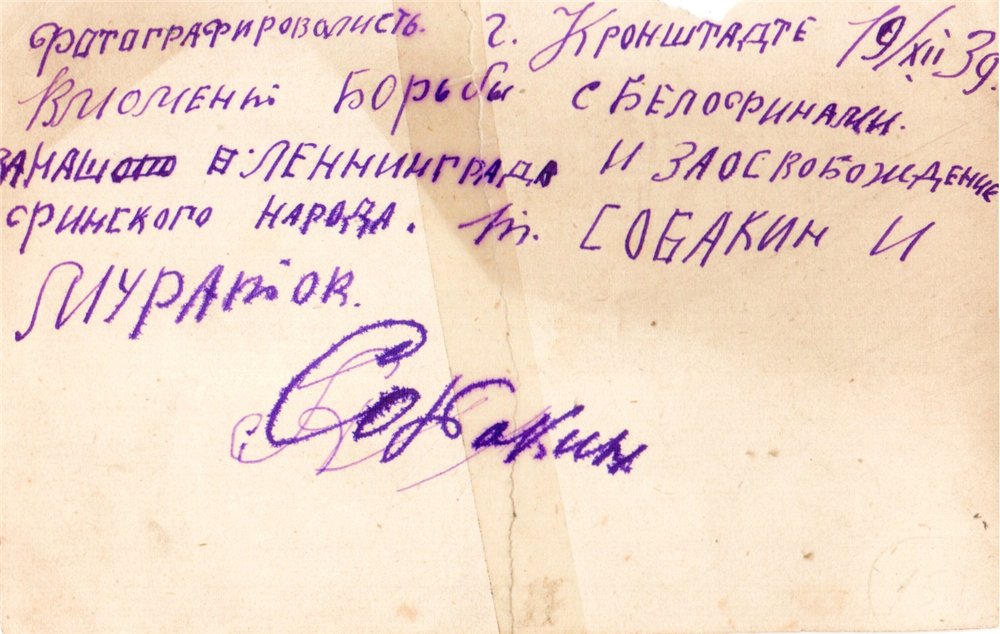 Фотографировалисть. г. Кронштадте 19/XII 39.
В момент Борьбы с Белофинами.
за наш Леннинграда и за освобождение
финского народа. т. Собакин и
Муратов.
Собакин